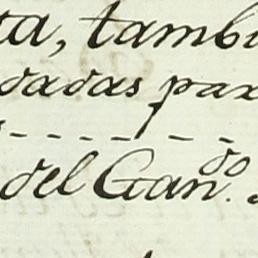 ta, tambi
dadas par
del Gan.do